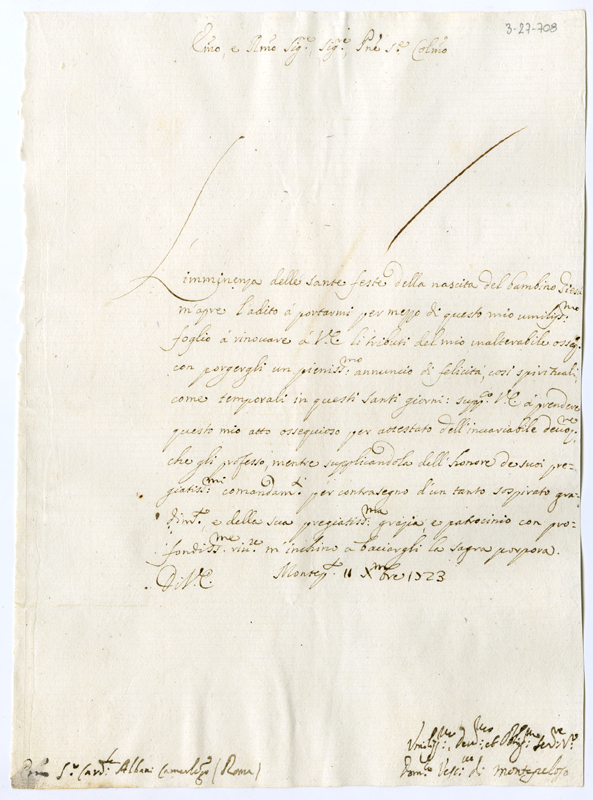 3-27-708
Emo, e Rmo Sigre, Sigre, Pne So Colmo
L'imminenza delle sante feste della nascita del bambino Giesù
m'apre l'adito à portarmi per mezzo di questo mio umiliss:mo
foglio à rinovare à V:E: li tributi del mio inalterabile osseq:
con porgergli un pieniss:mo annuncio di felicità, così spirituali,
come temporali in questi santi giorni: suppco V:E à prendere
questo mio atto ossequioso per attestato dell'invariabile devone,
che gli professo, mentre supplicandola dell'honore de suoi pre-
giatiss:mi comandamti per contrasegno d'un tanto sospirato gra-
dimto, e della sua pregiatiss:ma grazia, e patrocinio con pro-
fondiss:me rive m'inchino a baciargli la sagra porpora.
Di V:E: Montep: 11 Xmbre 1723
Umiliss:mo, devmo: et Obligmo: servre Vo
Domco Vesc:vo di Montepeloso
So Card:le Albani Camerlgo (Roma)